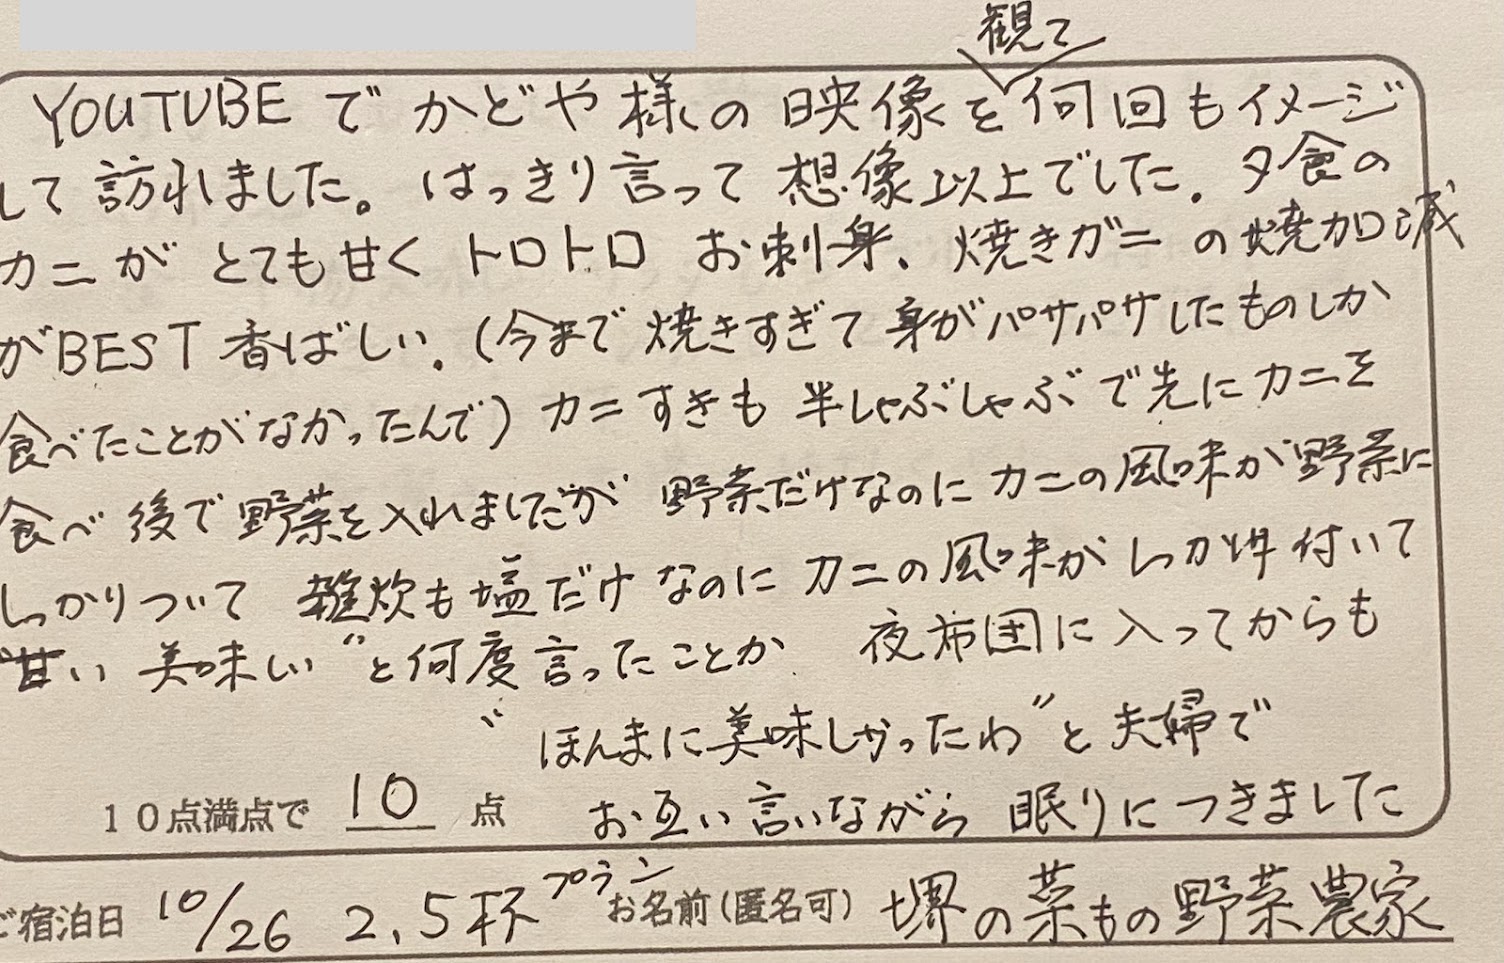 観て
YOUTUBEでかどや様の映像を何回もイメージ
して訪れました。はっきり言って想像以上でした。夕食の
カニがとても甘くトロトロお刺身、焼きガニの焼加減
がBEST香ばしい。(今まで焼きすぎて身がパサパサしたものしか
食べたことがなかったんで)カニすきも半しゃぶしゃぶで先にカニを
食べ後で野菜を入れましたが野菜だけなのにカニの風味が野菜に
しっかりついて雑炊も塩だけなのにカニの風味がしっかり付いて
"甘い美味しい"と何度言ったことか 夜布団に入ってからも
"ほんまに美味しかったわ"と夫婦で
10点満点で 10 点 お互い言いながら眠りにつきました
ご宿泊日 10/26 2,5杯プラン お名前(匿名可) 堺の葉もの野菜農家